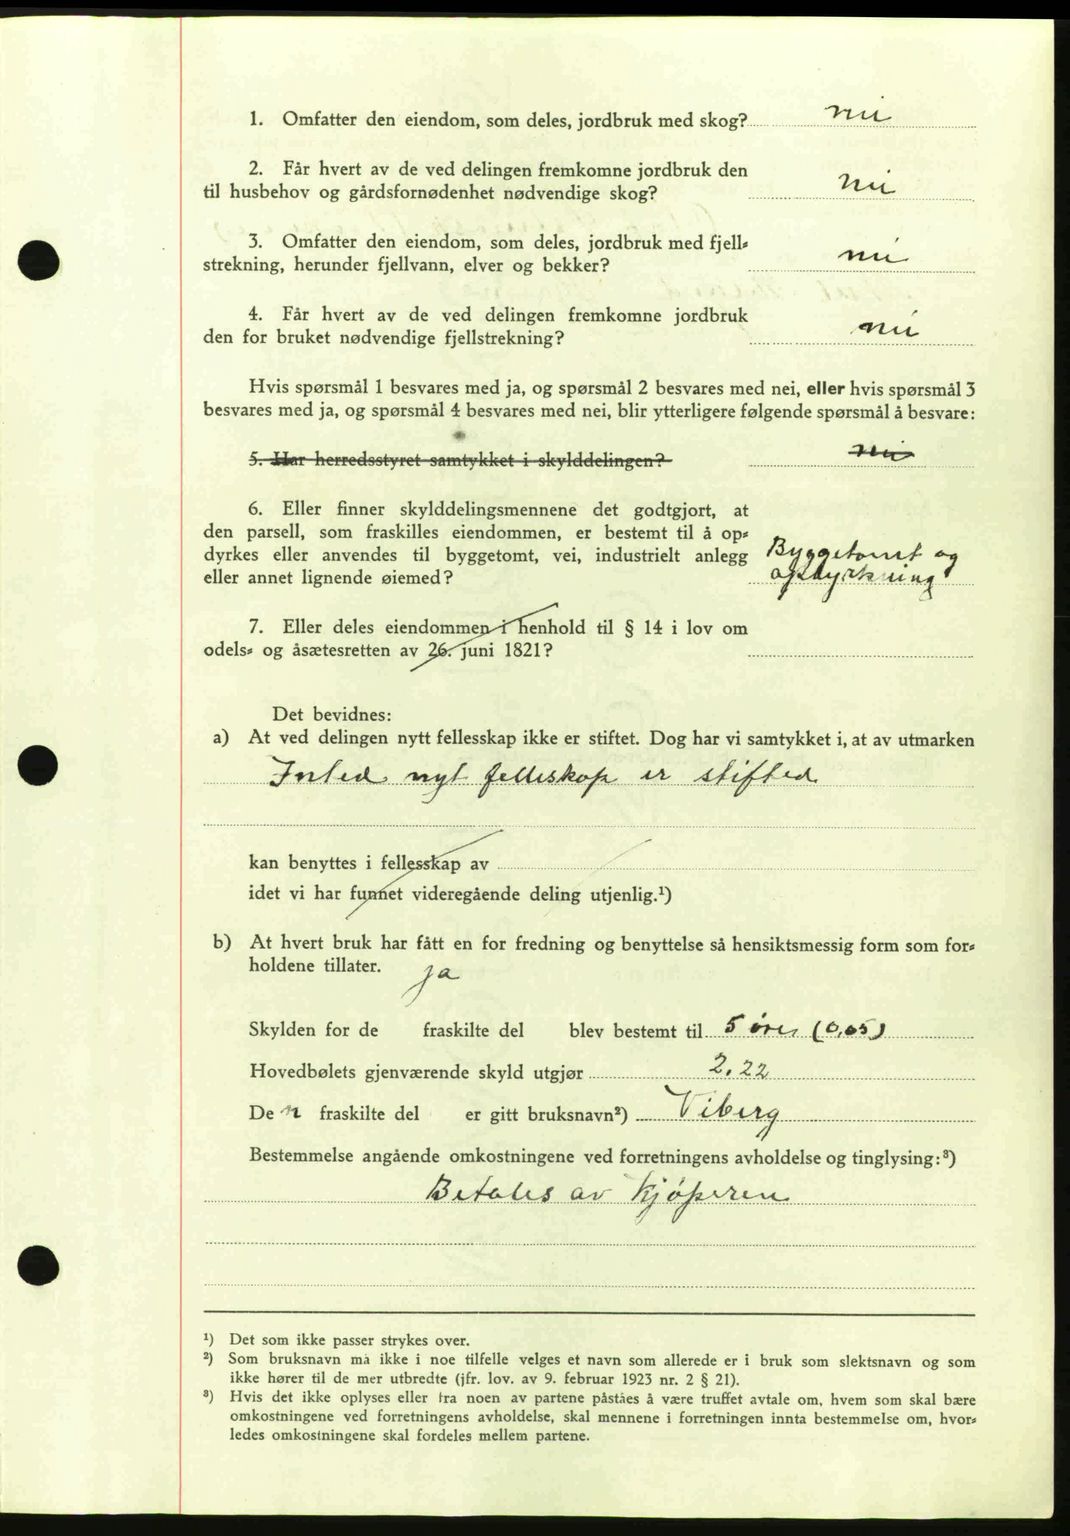 1. Omfatter den eiendom, som deles, jordbruk med skog? nei
2. Får hvert av de ved delingen fremkomne jordbruk den
til husbehov og gårdsfornødenhet nødvendige skog? nei
3. Omfatter den eiendom, som deles, jordbruk med fjell-
strekning, herunder fjellvann, elver og bekker? nei
4. Får hvert av de ved delingen fremkomne jordbruk
den for bruket nødvendige fjellstrekning? nei
Hvis spørsmål 1 besvares med ja, og spørsmål 2 besvares med nei, eller hvis spørsmål 3
besvares med ja, og spørsmål 4 besvares med nei, blir ytterligere følgende spørsmål å besvare:
5. Har herredsstyret samtykket i skylddelingen? nei
6. Eller finner skylddelingsmennene det godtgjort, at
den parsell, som fraskilles eiendommen, er bestemt til å op-
dyrkes eller anvendes til byggetomt, vei, industrielt anlegg Byggetomt og
eller annet lignende øiemed? opdyrkning
7. Eller deles eiendommen i henhold til § 14 i lov om
odels- og åsætesretten av 26. juni 1821?
Det bevidnes:
a) At ved delingen nytt fellesskap ikke er stiftet. Dog har vi samtykket i, at av utmarken
Inted nyt felleskap er stifted
kan benyttes i fellesskap av
idet vi har funnet videregående deling utjenlig.¹)
b) At hvert bruk har fått en for fredning og benyttelse så hensiktsmessig form som for-
holdene tillater. ja
Skylden for de fraskilte del blev bestemt til 5 øre (0,05)
Hovedbølets gjenværende skyld utgjør 2.22
De n fraskilte del er gitt bruksnavn²) Viberg
Bestemmelse angående omkostningene ved forretningens avholdelse og tinglysing:³)
Betales av kjøperen
¹) Det som ikke passer strykes over.
²) Som bruksnavn må ikke i noe tilfelle velges et navn som allerede er i bruk som slektsnavn og som
ikke hører til de mer utbredte (jfr. lov. av 9. februar 1923 nr. 2 § 21).
³) Hvis det ikke oplyses eller fra noen av partene påståes å være truffet avtale om, hvem som skal bære
omkostningene ved forretningens avholdelse, skal mennene i forretningen innta bestemmelse om, hvor-
ledes omkostningene skal fordeles mellem partene.